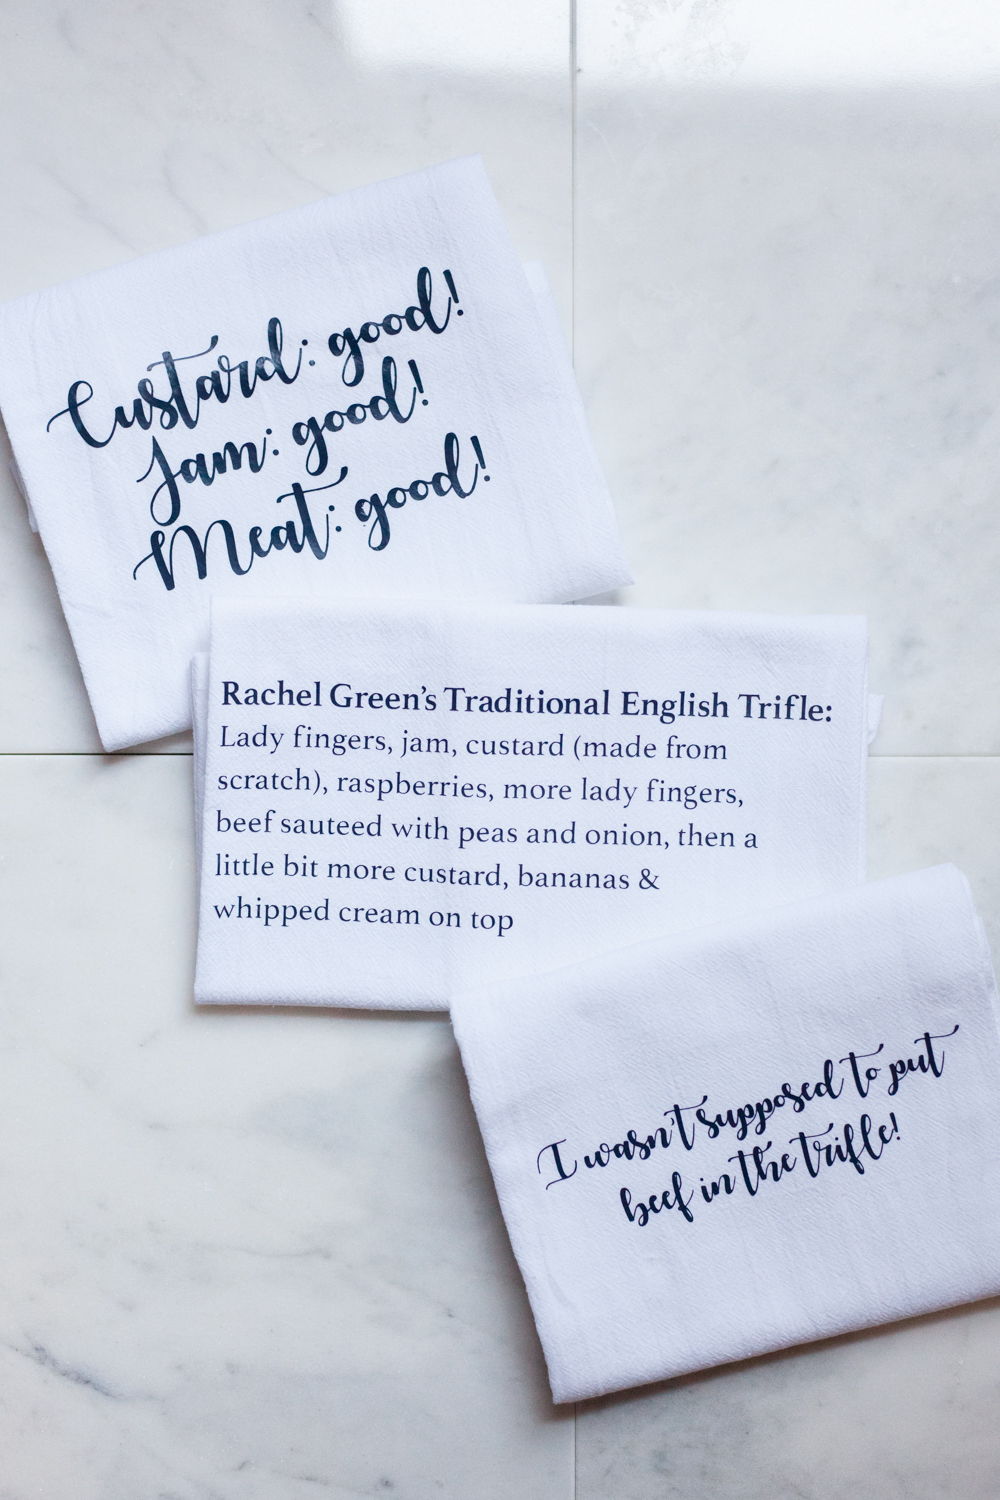 Custard: good!
Jam: good!
Meat: good!
Rachel Green's Traditional English Trifle:
Lady fingers, jam, custard (made from
scratch), raspberries, more lady fingers,
beef sauteed with peas and onion, then a
little bit more custard, bananas &
whipped cream on top
I wasn't supposed to put
beef in the trifle!